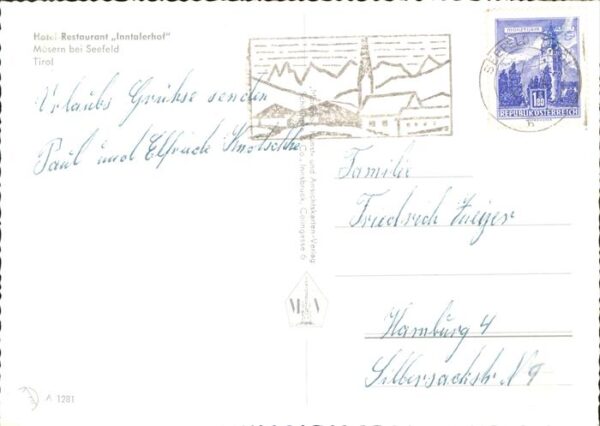 Hotel-Restaurant „Inntalerhof“
Mösern bei Seefeld
Tirol
Urlaubs Grühse senden
Paul und Elfriede
A 1281
1.80
REPUBLIK ÖSTERREICH
SEEFELD
Kunst- und Ansichtskarten-Verlag
Co., Innsbruck, Colingasse 6
Familie
Friedrich
Hamburg 4
Silbersackstr. N 9